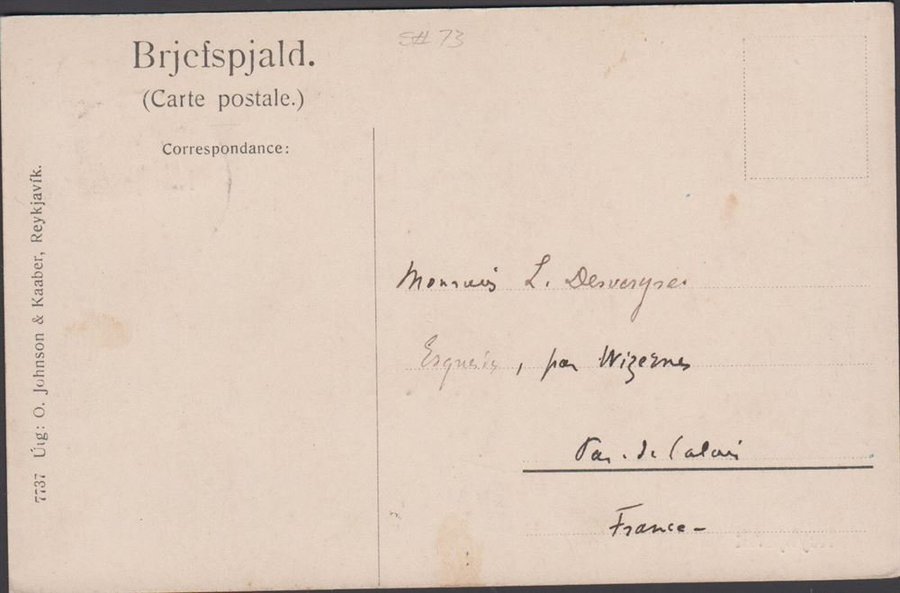 S# 73
Brjefspjald.
(Carte postale.)
Correspondance:
7737 Útg: O. Johnson & Kaaber, Reykjavík.
Monsieur L.
, par Wizernes
Pas-de-Calais
France-